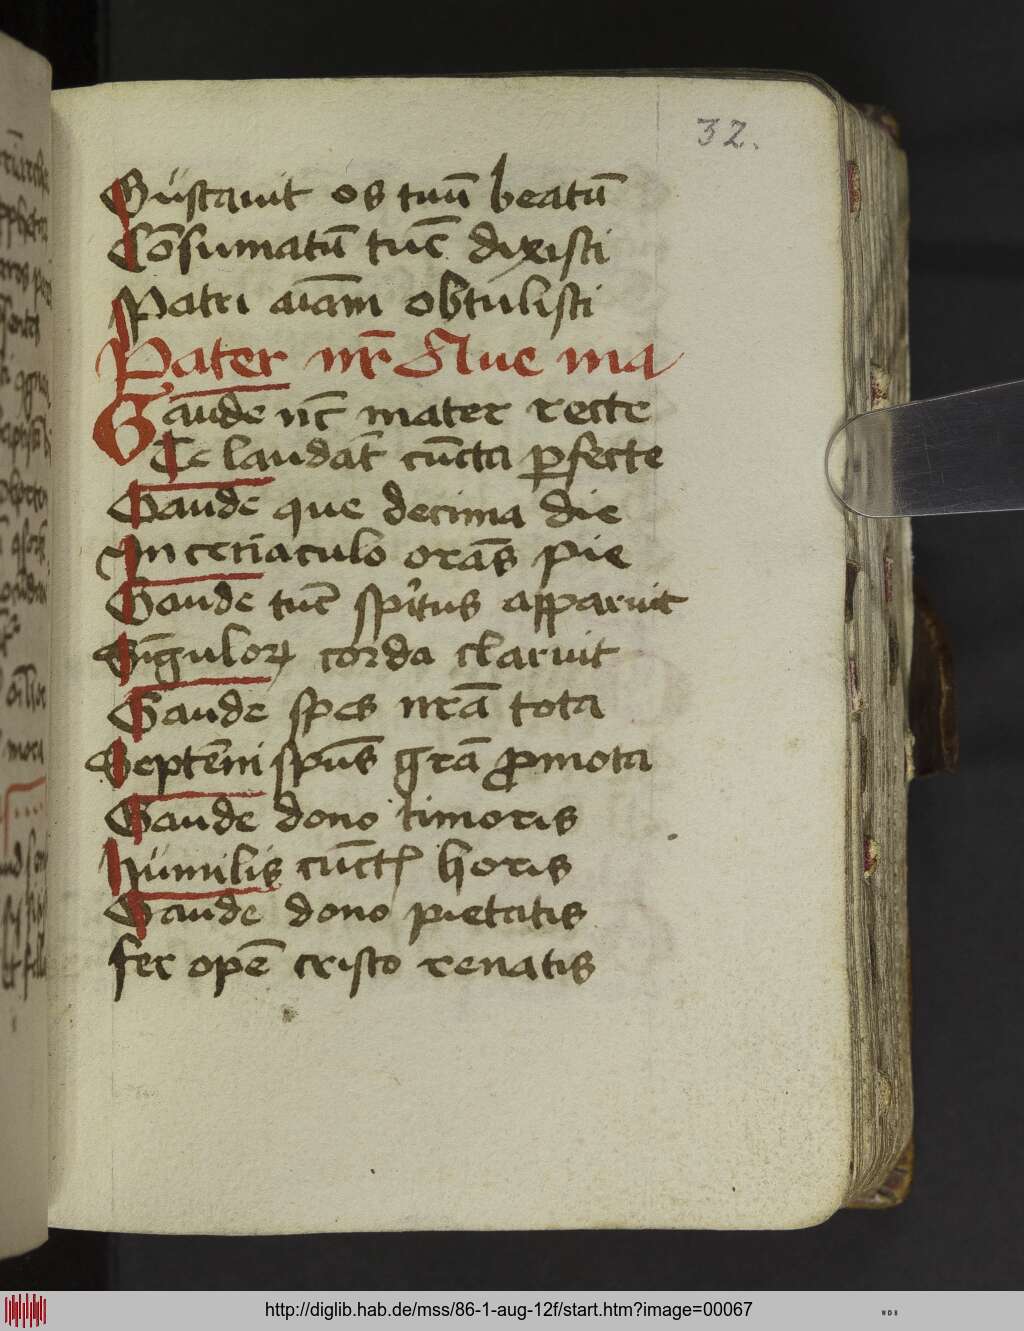 32.
Güstauit os tuū beatū
Cōsumatū tūc dixisti
Patri aīam obtulisti
Pater nr̄ Aue ma
Gaude nc̄ mater recte
Te laudāt cūcta ꝑfecte
Gaude que decima die
In cenaculo orās pie
Gaude tūc spi̇tus apparuit
Sīguloꝝ corda claruit
Gaude spes nrā tota
Septēni spūs grā ꝓmota
Gaude dono timoris
Hümilis cūctꝭ horis
Gaude dono pietatis
fer opē cristo renatis
http://diglib.hab.de/mss/86-1-aug-12f/start.htm?image=00067